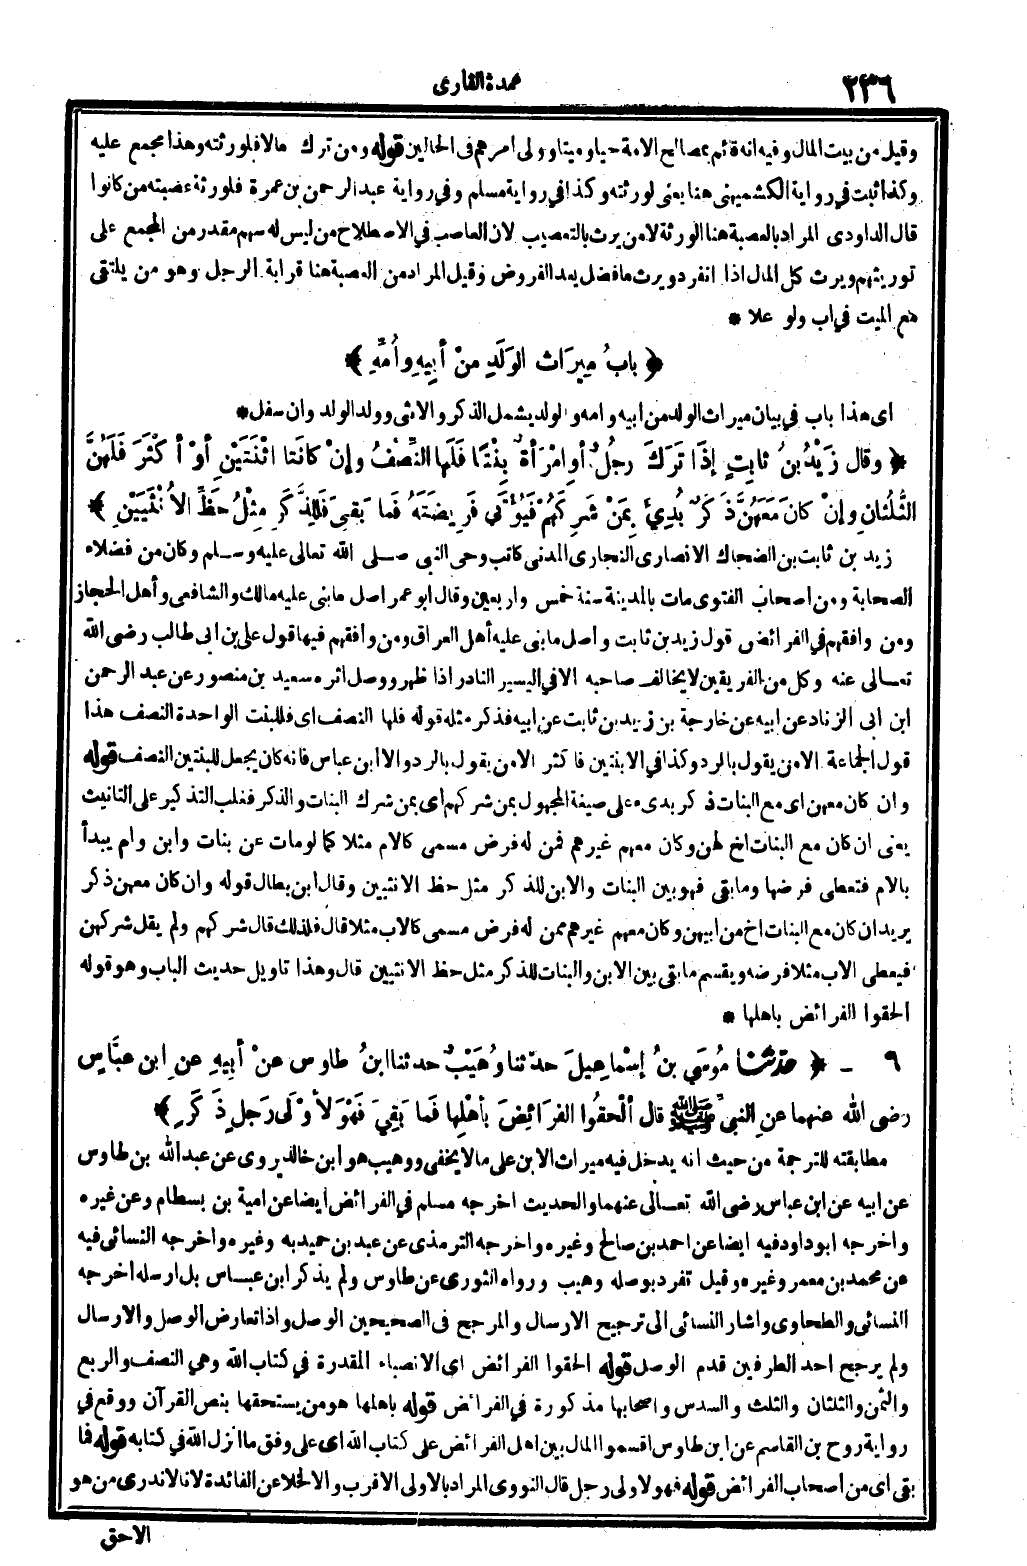 ٢٣٦
عمدة القارى
وقيل من بيت المال وفيه انه قائم بمصالح الامة حيا وميتا وولى امرهم فى الحالين قوله ومن ترك مالا فلورثته وهذا مجمع عليه
وكذا ثبت في رواية الكشميهنى هنا يعنى لورثته وكذا في رواية مسلم وفي رواية عبد الرحمن بن عمرة فلورثة عصبته من كانوا
قال الداودى المراد بالعصبة هنا الورثة لا من يرث بالتعصيب لان العاصب في الاصطلاح من ليس له سهم مقدر من المجمع على
توريثهم ويرث كل المال اذا انفرد ويرث ما فضل بعد الفروض وقيل المراد من العصبة هنا قرابة الرجل وهو من يلتقى
مع الميت في اب ولو علا *
﴿ بابُ مِيرَاثِ الوَلَدِ مِنْ أبِيهِ وأُمِّهِ ﴾
اى هذا باب في بيان ميراث الولد من ابيه وامه والولد يشمل الذكر والانثى وولد الولد وان سفل *
﴿ وقال زَيْدُ بنُ ثابِتٍ إذَا تَرَكَ رجُلٌ أوِ امْرَأةٌ بِنْتًا فَلَها النِّصْفُ وإنْ كانَتا اثْنَتَيْنِ أوْ أكْثَرَ فَلَهُنَّ
الثُّلُثانِ وإنْ كانَ مَعَهُنَّ ذَكَرٌ بُدِئَ بِمَنْ شَرِكَهُمْ فَيُؤْتَى فَرِيضَتَهُ فَما بَقِيَ فَلِلذَّكَرِ مِثْلُ حَظِّ الأُنْثَيَيْنِ ﴾
زيد بن ثابت بن الضحاك الانصارى النجارى المدنى كاتب وحى النبى صلى الله تعالى عليه وسلم وكان من فضلاء
الصحابة ومن اصحاب الفتوى مات بالمدينة سنة خمس واربعين وقال ابو عمر اصل ما بنى عليه مالك والشافعى وأهل الحجاز
ومن وافقهم في الفرائض قول زيد بن ثابت وأصل ما بنى عليه أهل العراق ومن وافقهم فيها قول على بن ابى طالب رضى الله
تعالى عنه وكل من الفريقين لا يخالف صاحبه الا في اليسير النادر اذا ظهر ووصل اثره سعيد بن منصور عن عبد الرحمن
ابن ابى الزناد عن ابيه عن خارجة بن زيد بن ثابت عن ابيه فذكر مثله قوله فلها النصف اى فللبنت الواحدة النصف هذا
قول الجماعة الا من يقول بالرد وكذا في الابنتين فاكثر الا من يقول بالرد والا ابن عباس فانه كان يجعل للبنتين النصف قوله
وان كان معهن اى مع البنات ذكر بدىء على صيغة المجهول بمن شركهم اى بمن شرك البنات والذكر فغلب التذكير على التانيث
يعنى ان كان مع البنات اخ لهن وكان معهم غيرهم فمن له فرض مسمى كالام مثلا كما لو مات عن بنات وابن وام يبدأ
بالام فتعطى فرضها وما بقى فهو بين البنات والابن للذكر مثل حظ الانثيين وقال ابن بطال قوله وان كان معهن ذكر
يريد ان كان مع البنات اخ من ابيهن وكان معهم غيرهم ممن له فرض مسمى كالاب مثلا قال فلذلك قال شركهم ولم يقل شركهن
فيعطى الاب مثلا فرضه ويقسم ما بقى بين الابن والبنات للذكر مثل حظ الانثيين قال وهذا تاويل حديث الباب وهو قوله
الحقوا الفرائض باهلها *
٩ ـ ﴿ حَدَّثَنا مُوسَى بنُ إسْماعِيلَ حدّثنا وُهَيْبٌ حدثنا ابنُ طاوسٍ عنْ أبِيهِ عنِ ابن عبَّاسٍ
رضى الله عنهما عنِ النبىِّ ﷺ قال ألْحِقُوا الفَرَائِضَ بأهْلِها فَما بَقِيَ فَهْوَ لأوْلَى رَجلٍ ذَكَرٍ ﴾
مطابقته للترجمة من حيث انه يدخل فيه ميراث الابن على ما لا يخفى ووهيب هو ابن خالد يروى عن عبد الله بن طاوس
عن ابيه عن ابن عباس رضى الله تعالى عنهما والحديث اخرجه مسلم في الفرائض ايضا عن امية بن بسطام وعن غيره
واخرجه ابو داود فيه ايضا عن احمد بن صالح وغيره واخرجه الترمذى عن عبد بن حميد به وغيره واخرجه النسائى فيه
عن محمد بن معمر وغيره وقيل تفرد بوصله وهيب ورواه الثورى عن طاوس ولم يذكر ابن عباس بل ارسله اخرجه
النسائى والطحاوى واشار النسائى الى ترجيح الارسال والمرجح فى الصحيحين الوصل واذا تعارض الوصل والارسال
ولم يرجح احد الطرفين قدم الوصل قوله الحقوا الفرائض اى الانصباء المقدرة في كتاب الله وهي النصف والربع
والثمن والثلثان والثلث والسدس واصحابها مذكورة في الفرائض قوله باهلها هو من يستحقها بنص القرآن ووقع في
رواية روح بن القاسم عن ابن طاوس اقسموا المال بين اهل الفرائض على كتاب الله اى على وفق ما انزل الله في كتابه قوله فما
بقى اى من أصحاب الفرائض قوله فهو لاولى رجل قال النووى المراد بالاولى الاقرب والا لخلا عن الفائدة لانا لا ندرى من هو
الاحق